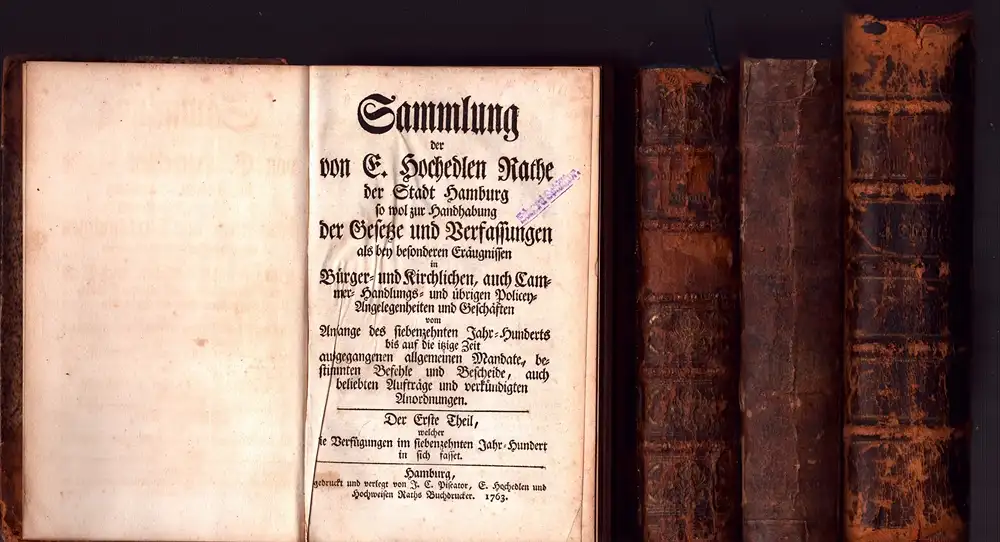 Sammlung
der
von E. Hochedlen Rathe
der Stadt Hamburg
so wol zur Handhabung
der Gesetze und Verfassungen
als bey besonderen Eräugnissen
in
Bürger- und Kirchlichen, auch Cam-
mer- Handlungs- und übrigen Policey-
Angelegenheiten und Geschäften
vom
Anfange des siebenzehnten Jahr-Hunderts
bis auf die itzige Zeit
ausgegangenen allgemeinen Mandate, be-
stimmten Befehle und Bescheide, auch
beliebten Aufträge und verkündigten
Anordnungen.
Der Erste Theil,
welcher
die Verfügungen im siebenzehnten Jahr-Hundert
in sich fasset.
Hamburg,
gedruckt und verlegt von J. C. Piscator, E. Hochedlen und
Hochweisen Raths Buchdrucker. 1763.